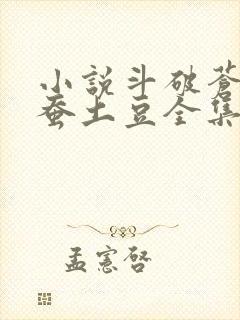 小説斗破蒼
蚕土豆全集
孟憲啓